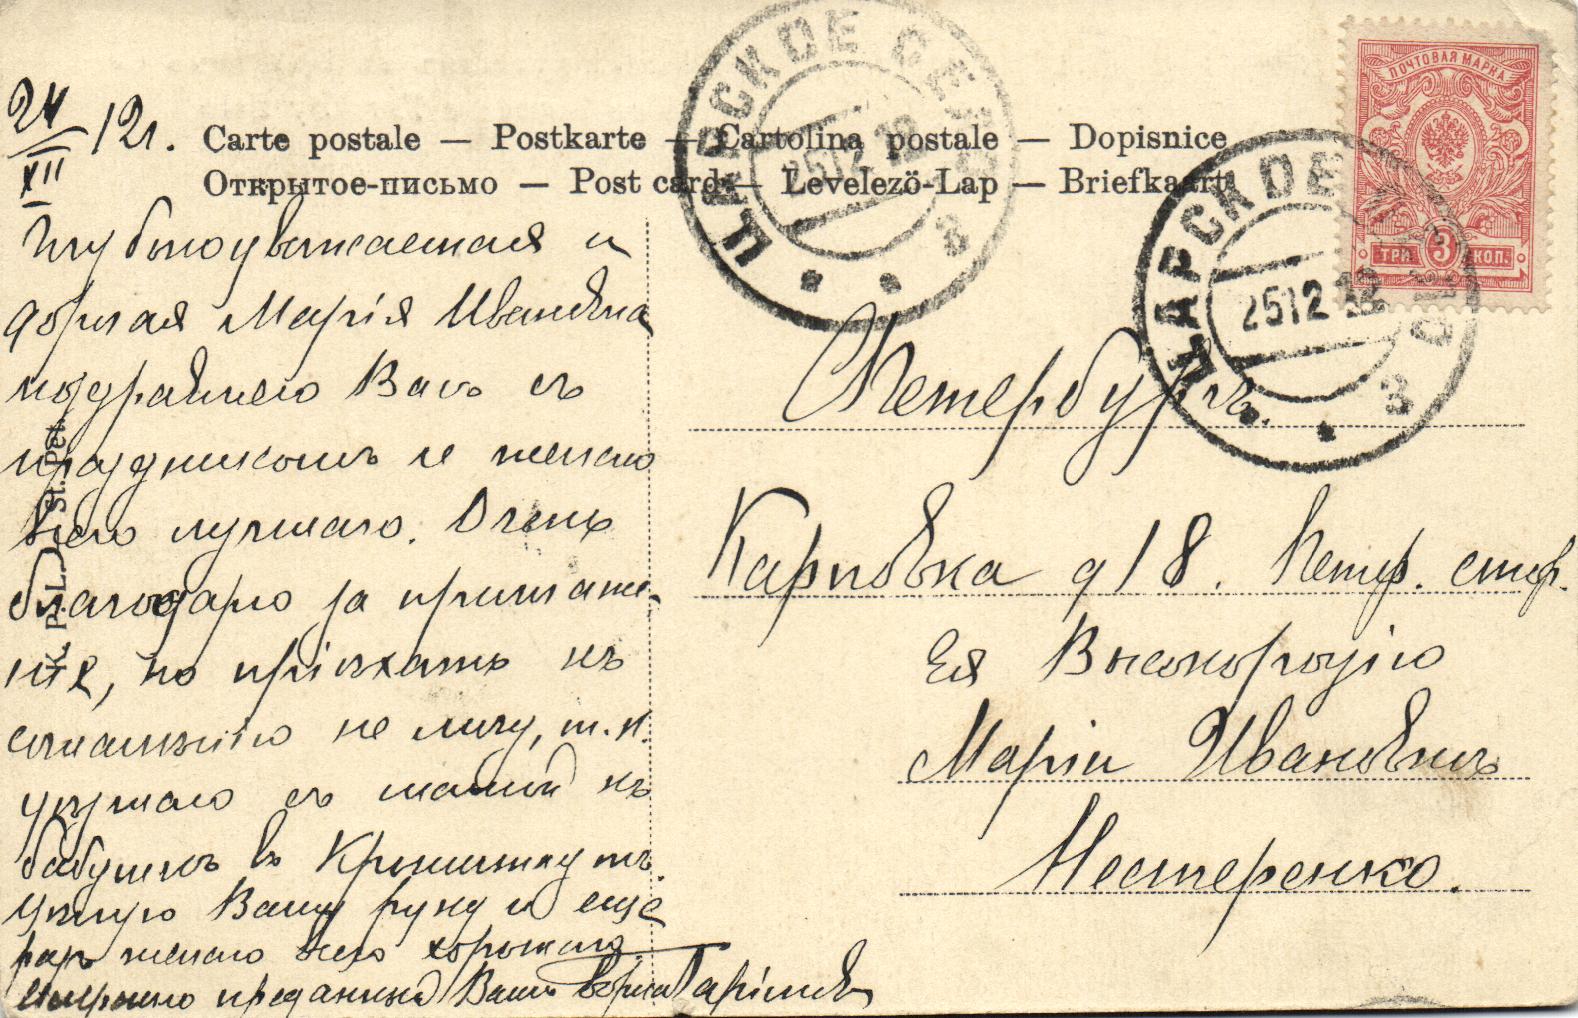 24/XII 12 г.
Carte postale — Postkarte — Cartolina postale — Dopisnice
Открытое-письмо — Post card — Levelező-Lap — Briefkaart
ЦАРСКОЕ СЕЛО
2512 12
3
ЦАРСКОЕ СЕЛО
2512 12
3
ПОЧТОВАЯ МАРКА
ТРИ 3 КОП.
Глубокоуважаемая и
добрая Марія Ивановна
поздравляю Васъ съ
праздникомъ и желаю
всего лучшаго. Очень
благодарю за приглаше-
ніе, но пріѣхать къ
сожалѣнію не могу, т. к.
уѣзжаю съ мамой къ
бабушкѣ въ Кронштадтъ.
Цѣлую Вашу руку и еще
разъ желаю всего хорошаго.
Искренно преданный Вамъ
С Петербургъ.
Карповка д 18. Петер. стор.
Ея Высокородію
Маріи Ивановнѣ
Нестеренко.
K. P. I. L. St. Pet.